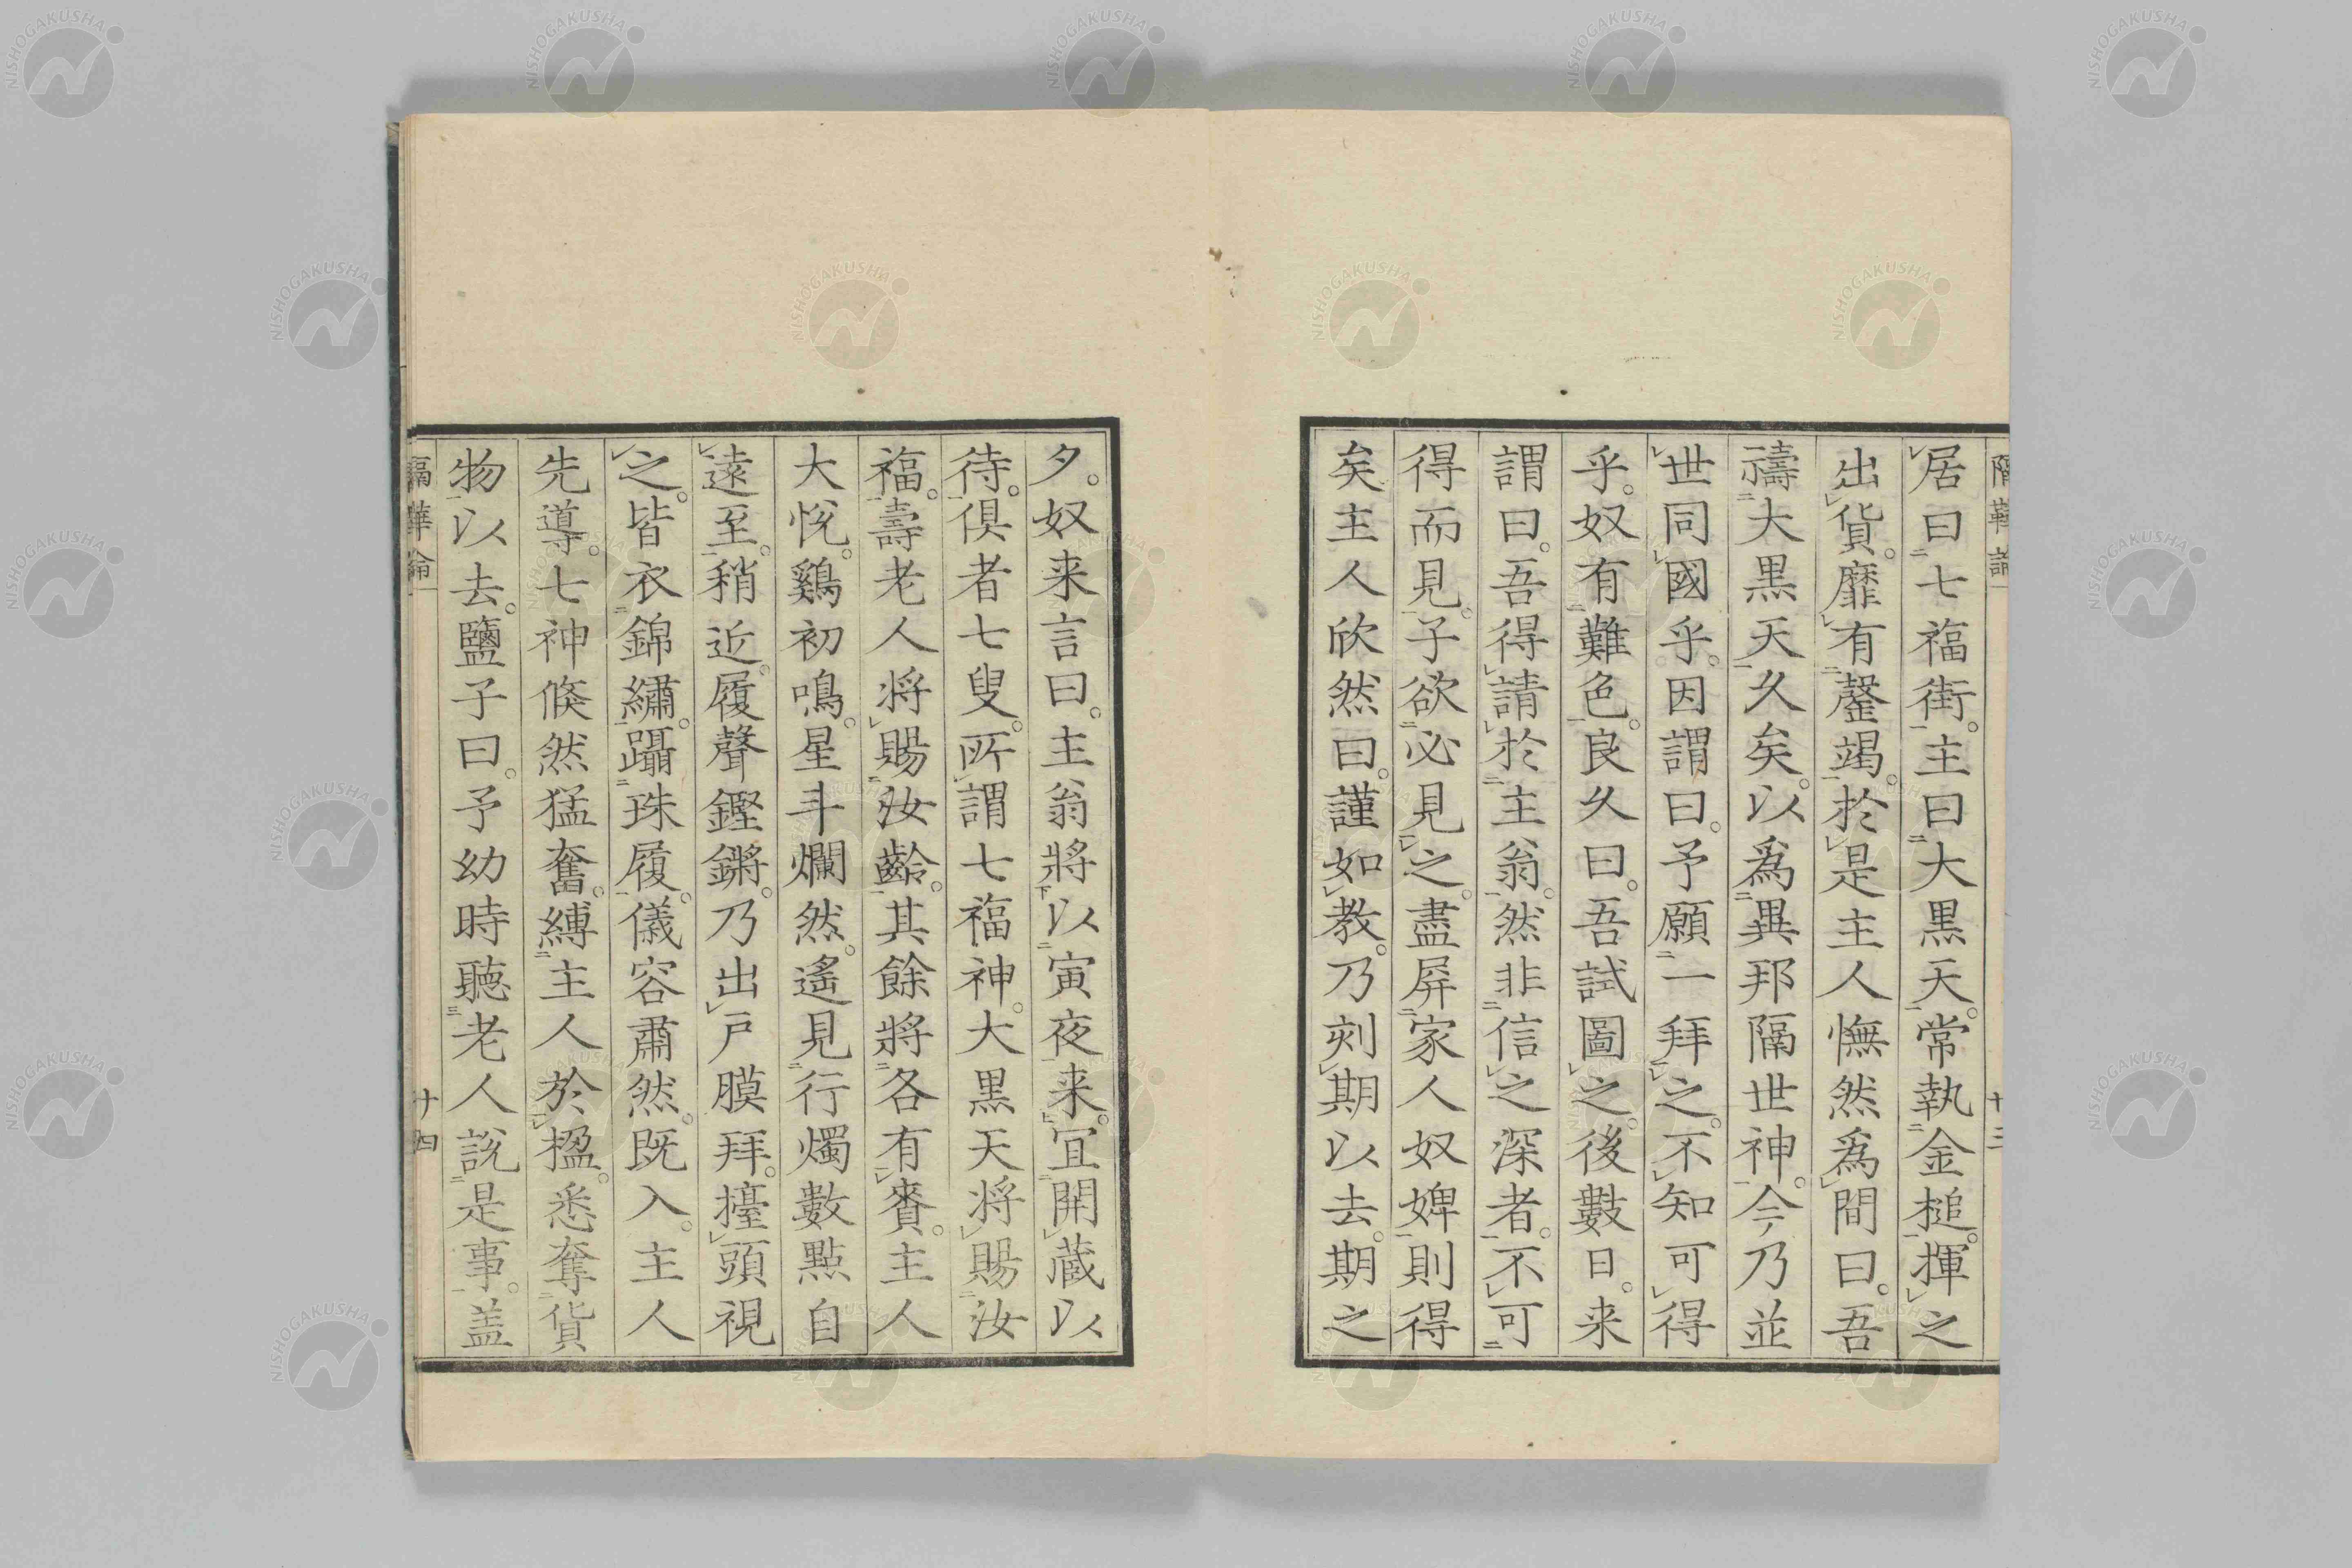 居曰七福街。主曰大黒天。常執金槌。揮之
出貨。靡有罄竭。於是主人憮然爲間曰。吾
禱大黒天久矣。以爲異邦隔世神。今乃並
世同國乎。因謂曰。予願一拜之。不知可得
乎。奴有難色。良久曰。吾試圖之。後數日。来
謂曰。吾得請於主翁。然非信之深者。不可
得而見。子欲必見之。盡屏家人奴婢則得
矣主人欣然曰。謹如教。乃刻期以去。期之
十三
夕。奴来言曰。主翁將以寅夜来。宜開蔵以
待。俱者七叟。所謂七福神。大黒天将賜汝
福。壽老人将賜汝齡。其餘將各有賚。主人
大悅。鷄初鳴。星斗爛然。遙見行燭數點自
遠至。稍近。履聲鏗鏘。乃出戸膜拜。擡頭視
之。皆衣錦繡。躡珠履。儀容肅然。既入。主人
先導。七神倐然猛奮。縛主人於楹。悉奪貨
物以去。鹽子曰。予幼時聽老人說是事。盖
十四
NISHOGAKUSHA